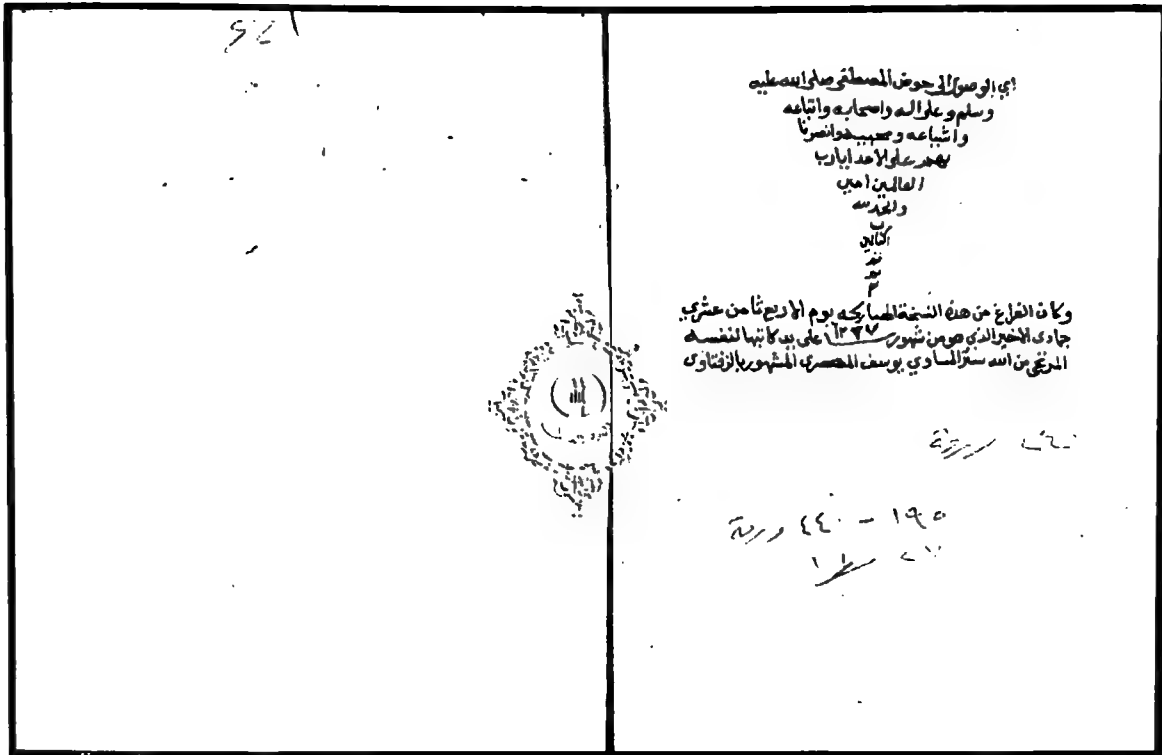 أي الوصول إلى حوض المصطفى صلى الله عليه
وسلم وعلى اله واصحابه واتباعه
واشياعه ومحبيه وانصرنا
بهم على الاعدا يارب
العالمين امين
والحمد لله
رب
العالمين
م
وكان الفراغ من هذه النسخة المباركه يوم الاربع ثامن عشري
جمادى الاخير الذي هو من شهور ١٢٣٧ على يد كاتبها لنفسه
المرتجي من الله ستر المساوي يوسف المصرى المشهور بالزفتاوى
١٩٥ - ٤٤٠ ورقة